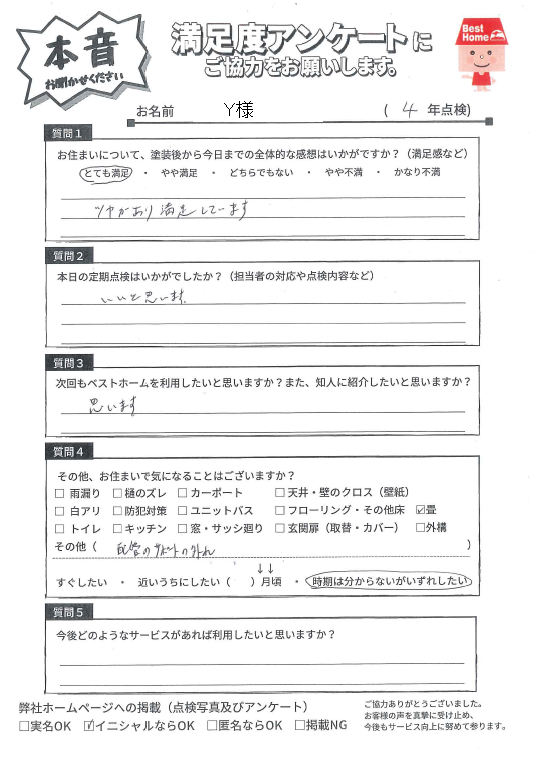 本音
お聞かせください
満足度アンケートに
ご協力をお願いします。
Best
Home
お名前 Y様 ( 4 年点検)
質問1
お住まいについて、塗装後から今日までの全体的な感想はいかがですか？（満足感など）
とても満足 ・ やや満足 ・ どちらでもない ・ やや不満 ・ かなり不満
ツヤがあり満足しています
質問2
本日の定期点検はいかがでしたか？（担当者の対応や点検内容など）
いいと思います。
質問3
次回もベストホームを利用したいと思いますか？また、知人に紹介したいと思いますか？
思います
質問4
その他、お住まいで気になることはございますか？
☐ 雨漏り ☐ 樋のズレ ☐ カーポート ☐ 天井・壁のクロス（壁紙）
☐ 白アリ ☐ 防犯対策 ☐ ユニットバス ☐ フローリング・その他床 ☑畳
☐ トイレ ☐ キッチン ☐ 窓・サッシ廻り ☐ 玄関扉（取替・カバー） ☐外構
その他（ 配管のサポートの外れ ）
↓↓
すぐしたい ・ 近いうちにしたい（ ）月頃 ・ 時期は分からないがいずれしたい
質問5
今後どのようなサービスがあれば利用したいと思いますか？
弊社ホームページへの掲載（点検写真及びアンケート）
☐実名OK ☑イニシャルならOK ☐匿名ならOK ☐掲載NG
ご協力ありがとうございました。
お客様の声を真摯に受け止め、
今後もサービス向上に努めて参ります。